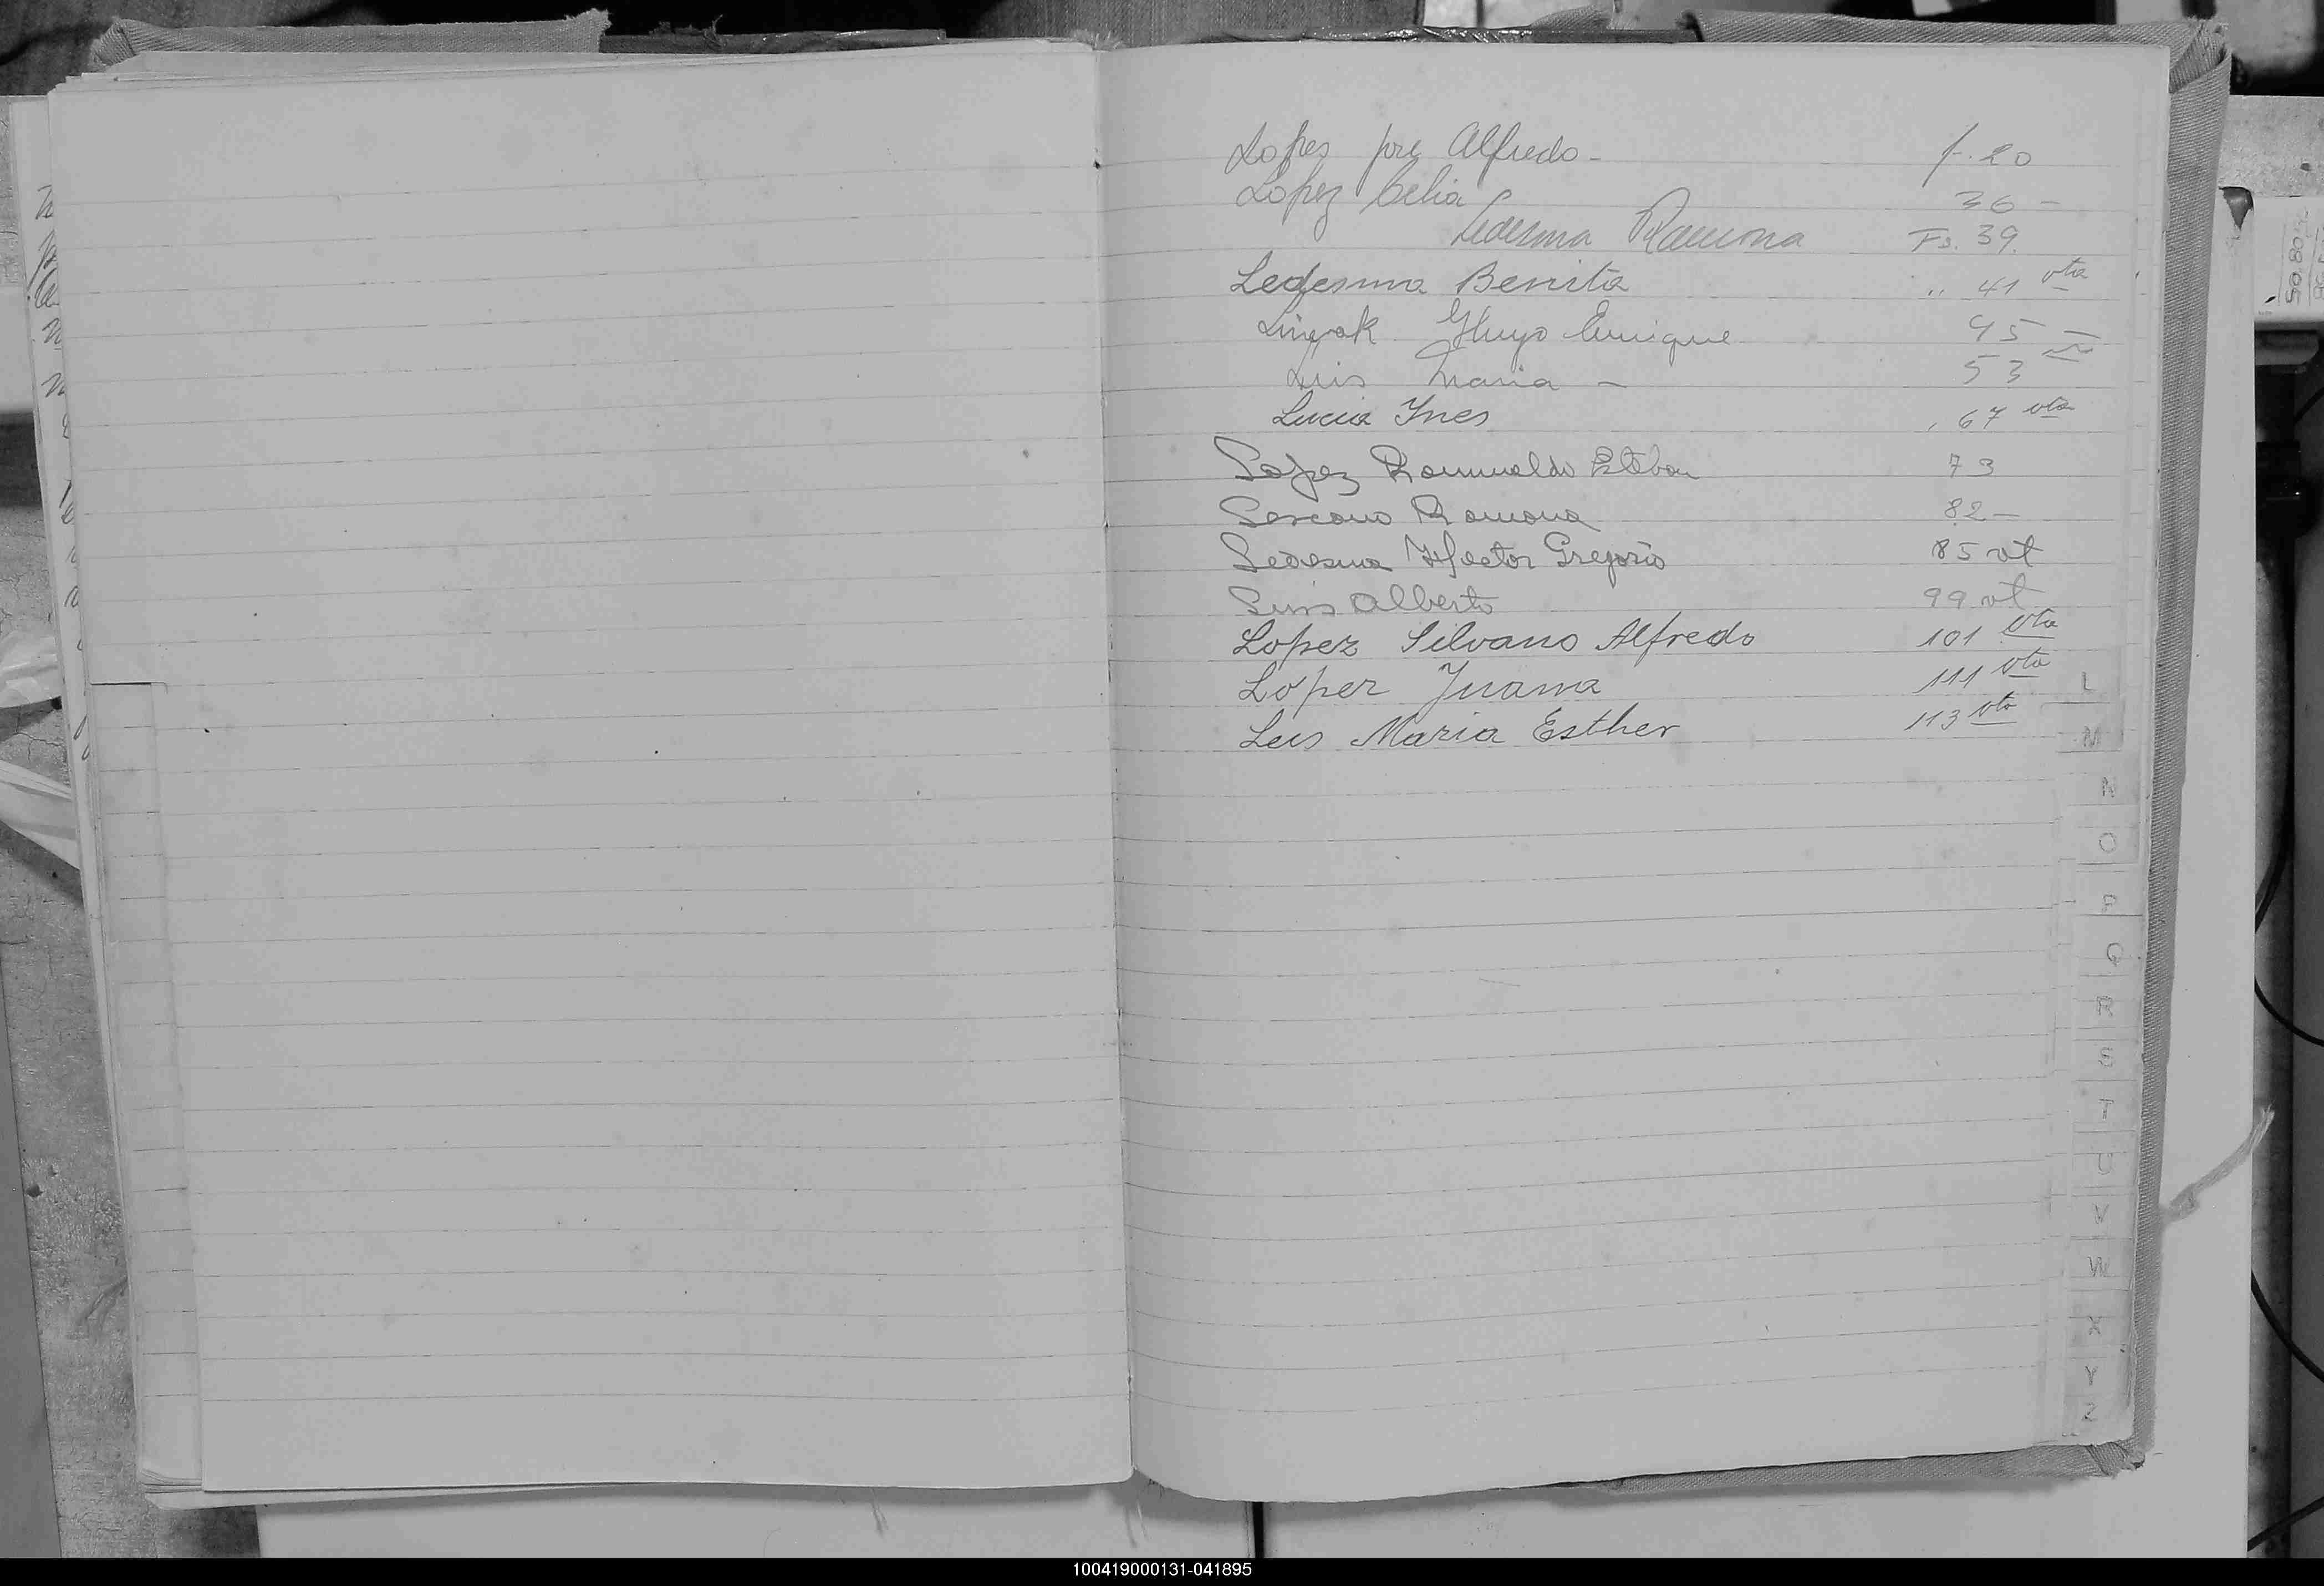 Lopes jose Alfredo - f. 20
Lopez Celia 36 -
Ledesma Ramona Fo. 39.
Ledesma Benita " 41 vta
Hugo Enrique 45 -
Luis Maria - 53
Lucia Ynes 67 vta
Lopez Romualdo Esteban 73
Lescano Ramona 82 -
Ledesma Hector Gregorio 85 vt
Luis Alberto 99 vt
Lopez Silvano Alfredo 101 vta
Lopez Juana 111 vta
Luis Maria Esther 113 vta
L
M
N
O
P
Q
R
S
T
U
V
W
X
Y
Z
100419000131-041895